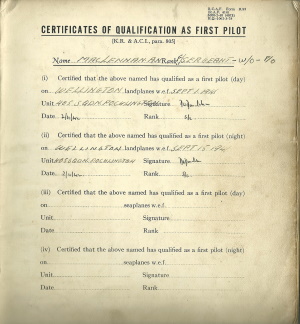 CERTIFICATES OF QUALIFICATION AS FIRST PILOT
[K.R. & A.C.I., para. 805]
Name MACLENNAN AN Rank SERGEANT - W/O - P/O
(i) Certified that the above named has qualified as a first pilot (day)
on WELLINGTON landplanes w.e.f. SEPT 1, 1941
Unit 405 SQDN. POCKLINGTON Signature
Date Rank
(ii) Certified that the above named has qualified as a first pilot (night)
on WELLINGTON landplanes w.e.f. SEPT 15 1941
Unit 405 SQDN. POCKLINGTON Signature
Date Rank
(iii) Certified that the above named has qualified as a first pilot (day)
on seaplanes w.e.f.
Unit Signature
Date Rank
(iv) Certified that the above named has qualified as a first pilot (night)
on seaplanes w.e.f.
Unit Signature
Date Rank